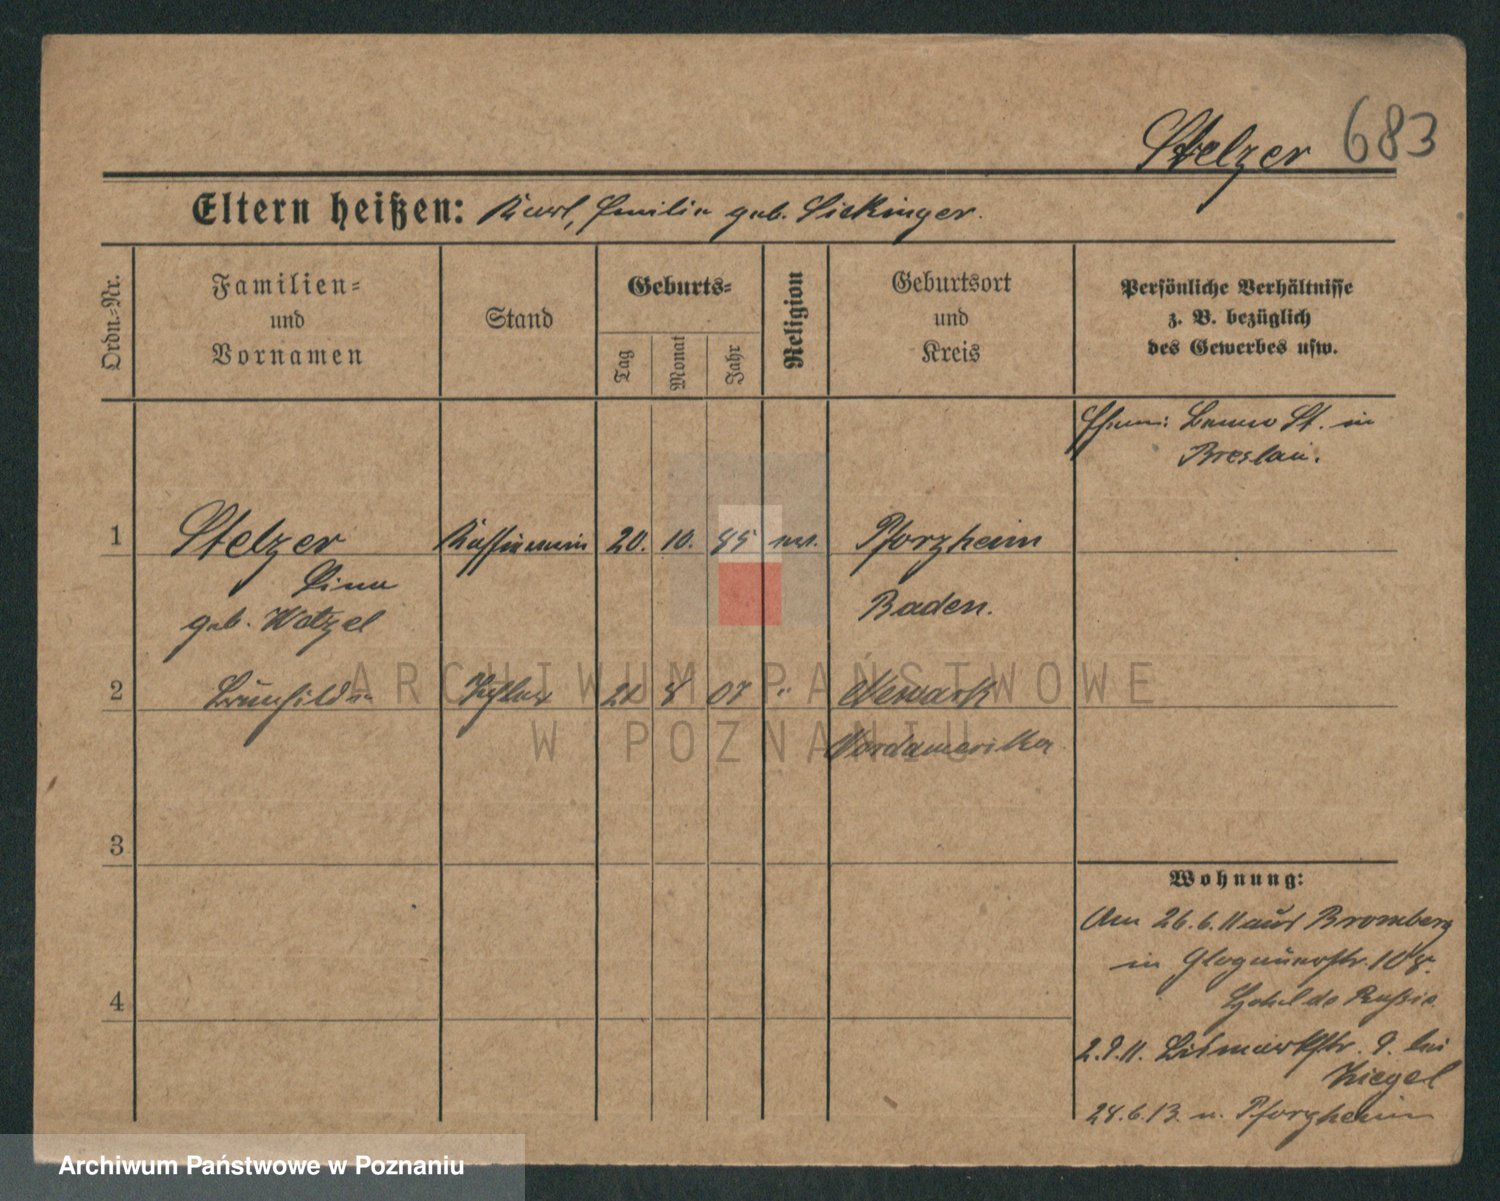 Stelzer 683
Eltern heißen: Karl, Emilie geb. Sickinger.
Ordn.-Nr.
Familien-
und
Vornamen
Stand
Geburts-
Tag
Monat
Jahr
Religion
Geburtsort
und
Kreis
Persönliche Verhältnisse
z. B. bezüglich
des Gewerbes usw.
Ehem: Benno St. in
Breslau.
1 Stelzer 20. 10. 85 Pforzheim
Lina
geb. Watzel
Baden.
2 Brunhilde Tochter 21 8 07 " Newark
Nordamerika
3
4
Wohnung:
Am 26.6.11 aus Bromberg
in Glogauerstr. 108.
Hotel de Russie
2.9.11. Bismarkstr. 9. bei
Ziegel
24.6.13. n. Pforzheim
ARCHIWUM PAŃSTWOWE
W POZNANIU
Archiwum Państwowe w Poznaniu